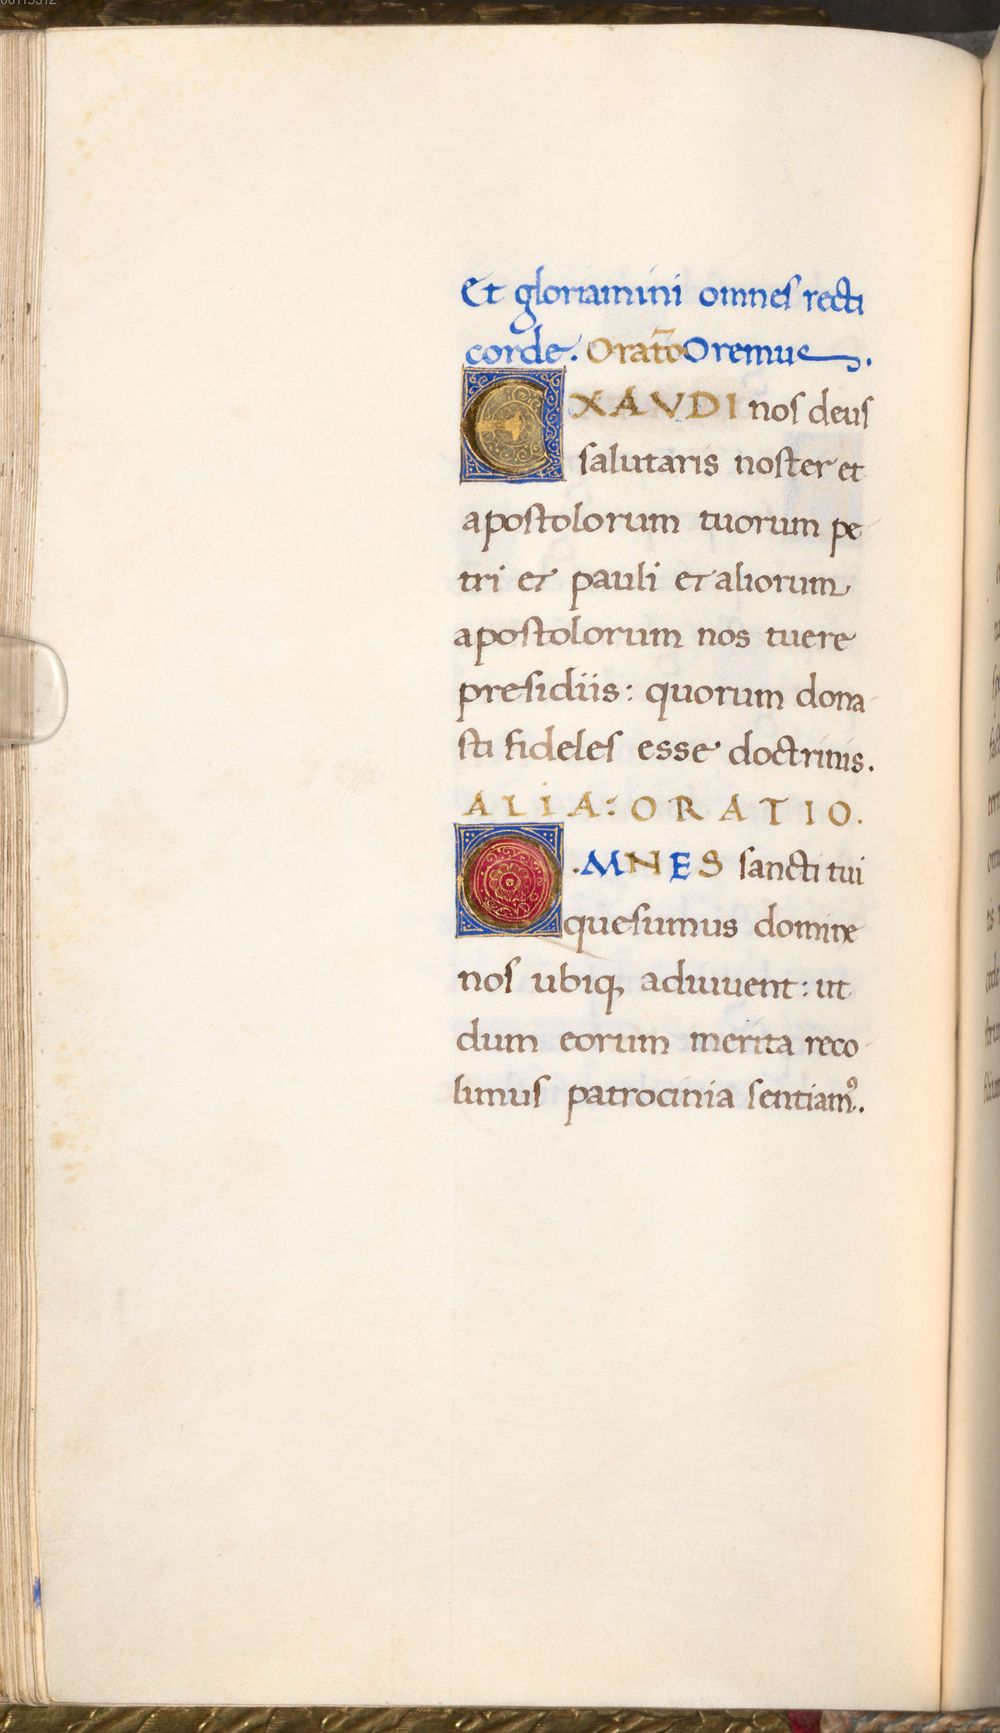 Et gloriamini omnes recti
corde. Orat̄o Oremus.
EXAVDI nos deus
salutaris noster et
apostolorum tuorum pe
tri et pauli et aliorum
apostolorum nos tuere
presidiis: quorum dona
sti fideles esse doctrinis.
ALIA: ORATIO.
O.MNES sancti tui
quesumus domine
nos ubiq, adiuuent: ut
dum eorum merita reco
limus patrocinia sentiamꝰ.